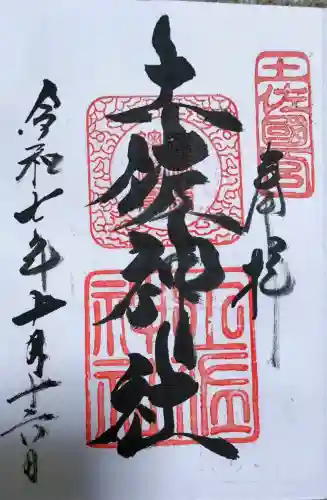 奉拝
土佐國一宮
土佐神社
土佐神社
令和七年十月十六日